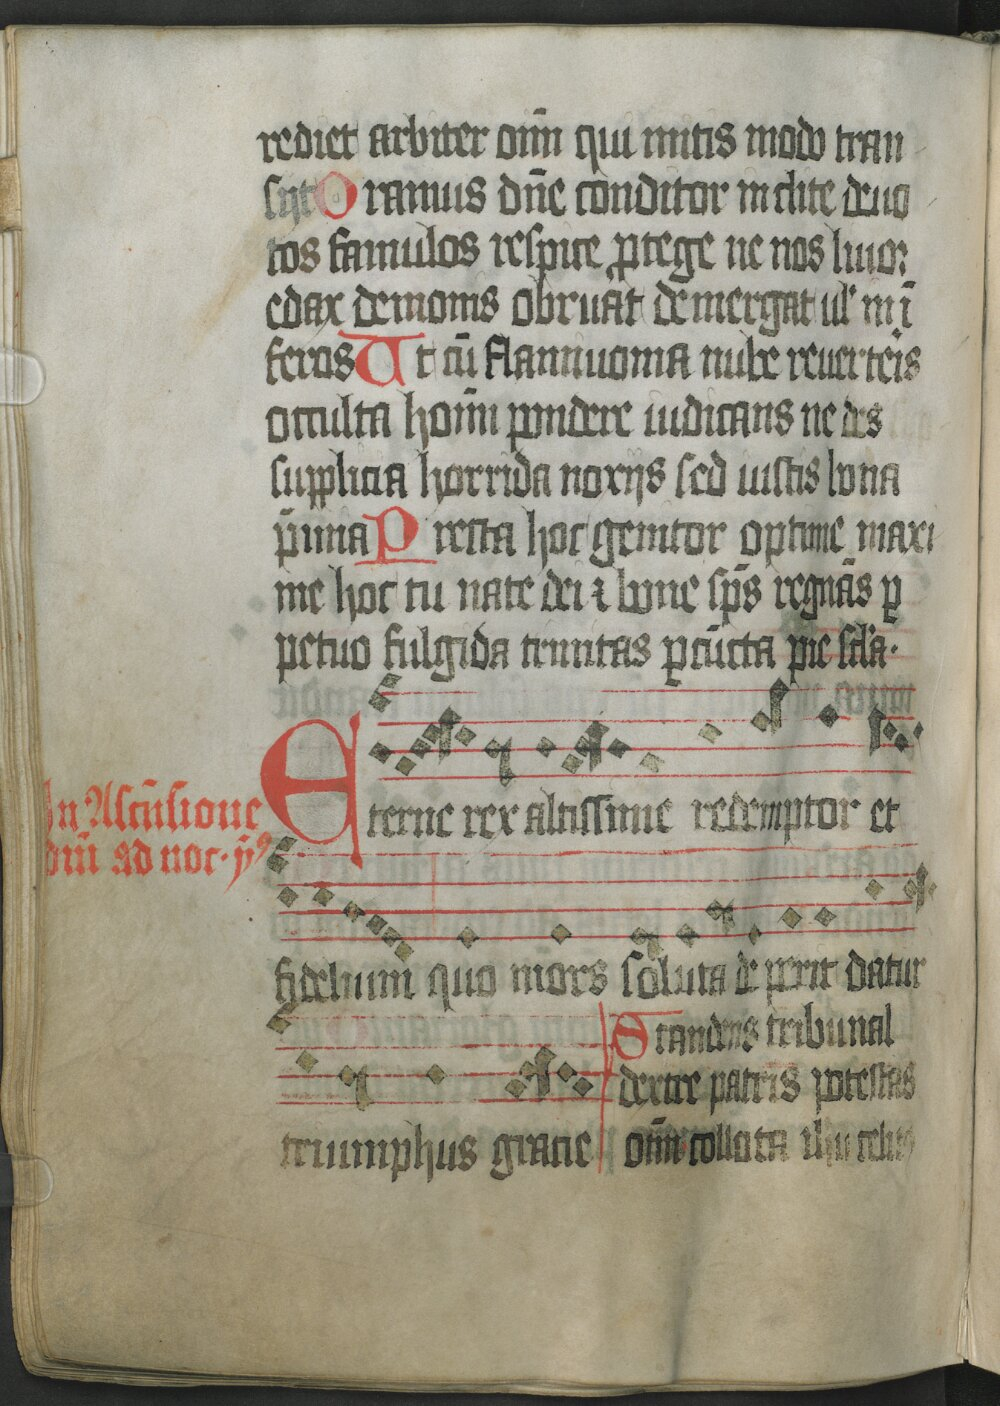 rediet arbiter oīm qui mitis modo tran
sijt Oramus dn̄e conditor inclite deuo
tos famulos respice ꝓtege ne nos liuor
edax demonis obruat demergat ul' in ī
feros Ut cū flammiuoma nube reuertēis
occulta hoīm pandere iudicans ne des
supplicia horrida noxijs sed iustis bona
p̄mia Presta hoc genitor optime maxi
me hoc tu nate dei ⁊ bone sp̄s regnās ꝑ
petuo fulgida trinitas ꝑ cūcta pie sc̄la.
Eterne rex altissime redemptor et
In Ascēsione
dm̄i ad noc. ẏ9
fidelium quo mors soluta deperit datur
triumphus gracie
Scandens tribunal
dextre patris potestas
oīm collata ihu celit9